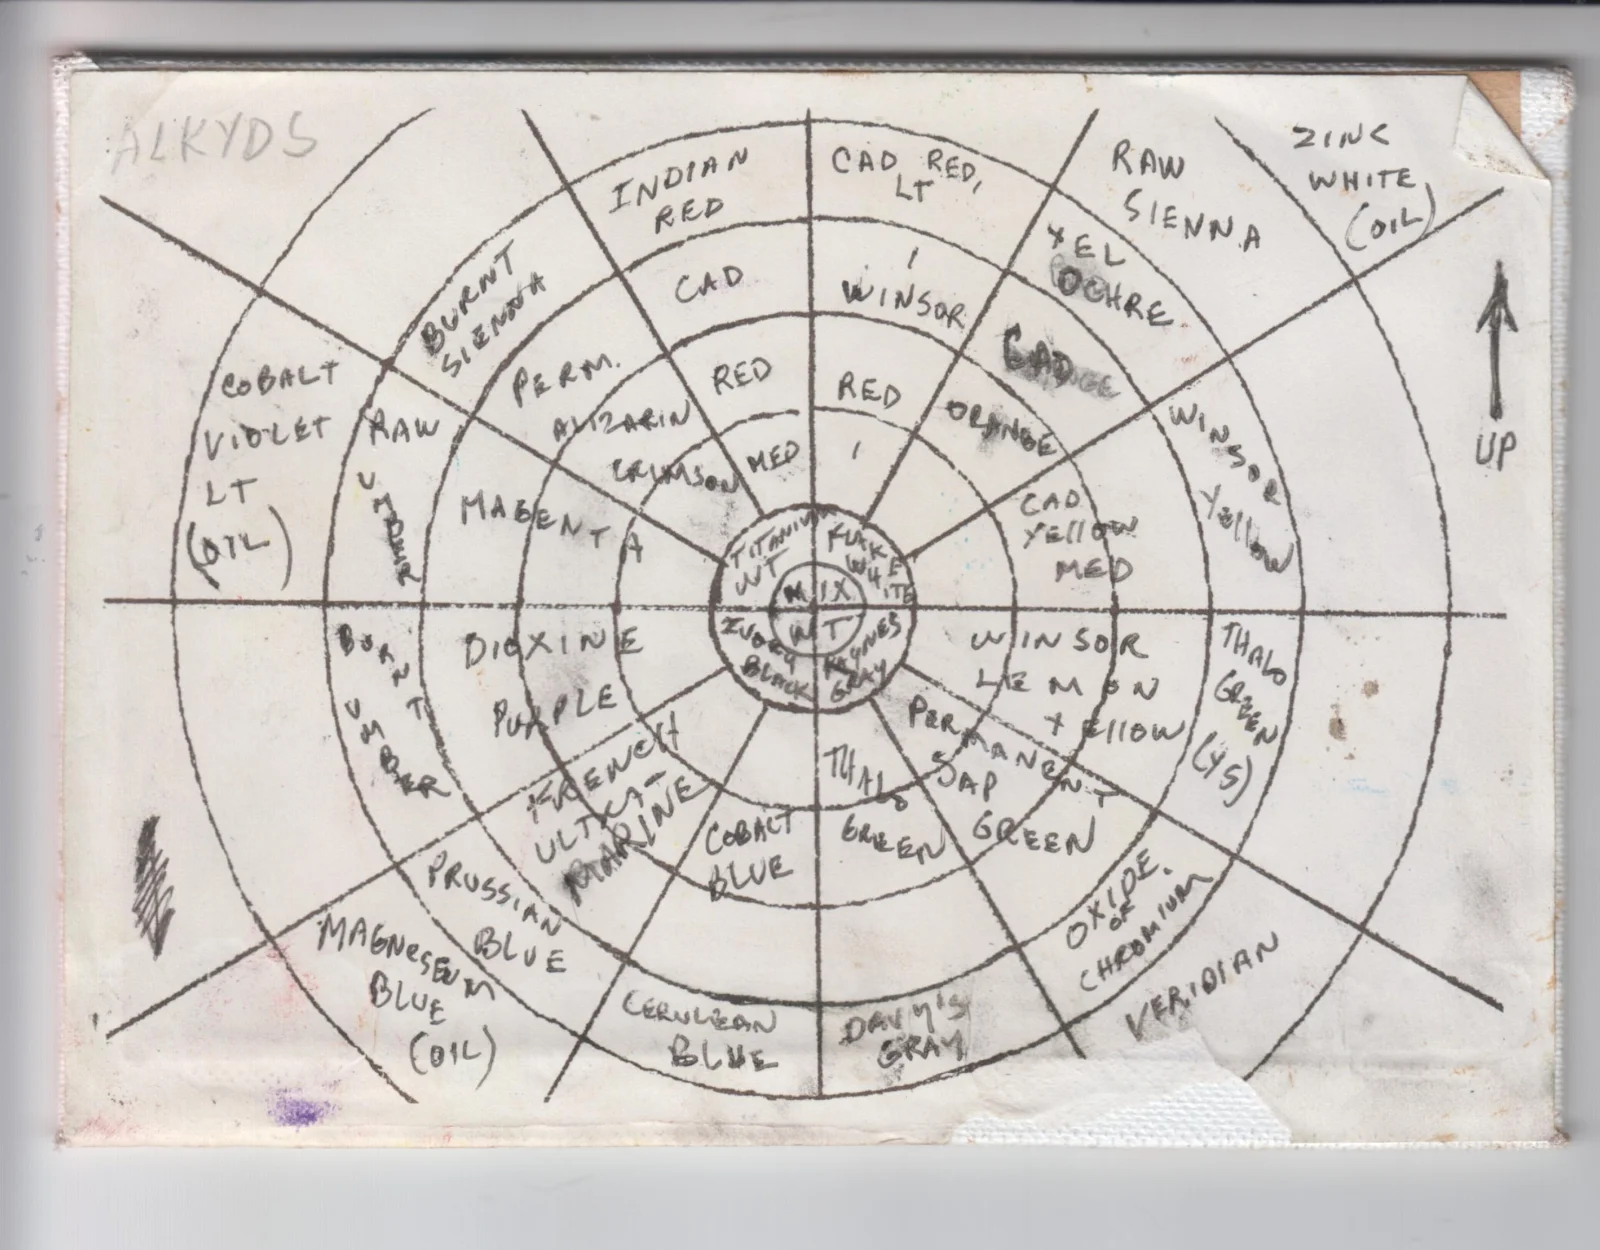 ALKYDS
INDIAN
RED
CAD RED,
LT
RAW
SIENNA
ZINC
WHITE
(OIL)
UP
BURNT
SIENNA
CAD
RED
MED
WINSOR
RED
YEL
OCHRE
CAD
ORANGE
WINSOR
YELLOW
CAD
YELLOW
MED
PERM.
ALIZARIN
CRIMSON
COBALT
VIOLET
LT
(OIL)
RAW
UMBER
MAGENTA
TITANIUM
WT
FLAKE
WHITE
MIX
WT
IVORY
BLACK
PAYNES
GRAY
DIOXINE
PURPLE
BURNT
UMBER
WINSOR
LEMON
YELLOW
THALO
GREEN
(YS)
FRENCH
ULTRA-
MARINE
PRUSSIAN
BLUE
MAGNESEUM
BLUE
(OIL)
COBALT
BLUE
CERULEAN
BLUE
THALO
GREEN
DAVY'S
GRAY
PERMANENT
SAP
GREEN
OXIDE.
OF
CHROMIUM
VERIDIAN